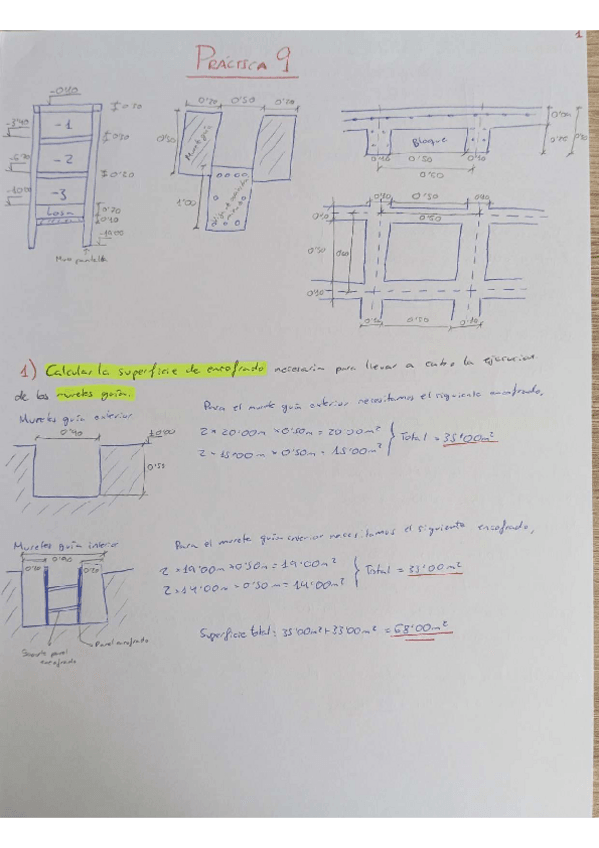 1
PRÁCTICA 9
-0'40
0'20
-3'40
-1
0'20
-2
0'20
-3
-10'00
0'20
Losa
0'10
Muro pantalla
0'20 0'50 0'20
0'50
Murete guía
1'00
Bloque
0'10 0'50 0'10
0'60
0'10 0'50 0'10
0'60
0'10
0'50
0'60
0'10
0'10 0'50 0'10
1) Calcular la superficie de encofrado necesaria para llevar a cabo la ejecución
de los muretes guía.
Muretes guía exterior
±0'00
0'50
Para el murete guía exterior necesitamos el siguiente encofrado,
2 × 20'00m × 0'50m = 20'00m²
2 × 15'00m × 0'50m = 15'00m²
Total = 35'00m²
Muretes guía interior
0'20 0'20
Soporte panel encofrado
Panel encofrado
Para el murete guía interior necesitamos el siguiente encofrado,
2 × 19'00m × 0'50m = 19'00m²
2 × 14'00m × 0'50m = 14'00m²
Total = 33'00m²
Superficie total: 35'00m² + 33'00m² = 68'00m²